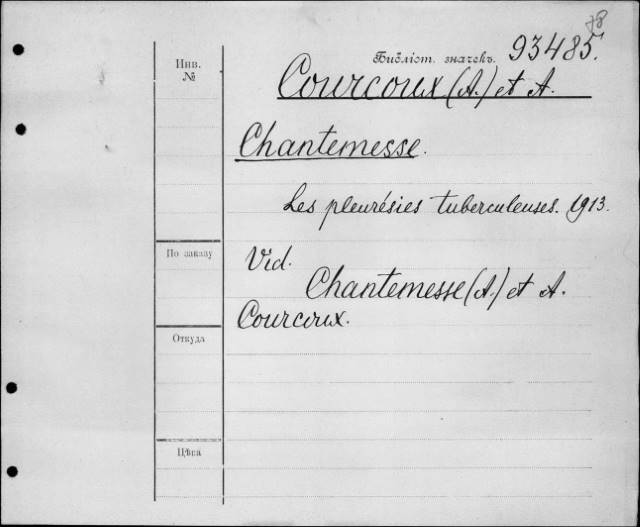 78
Инв.
№
Библіот. значекъ. 93485.
Courcoux (A.) et A.
Chantemesse.
Les pleurésies tuberculeuses. 1913.
По заказу
Vid.
Chantemesse (A.) et A.
Courcoux.
Откуда
Цѣна